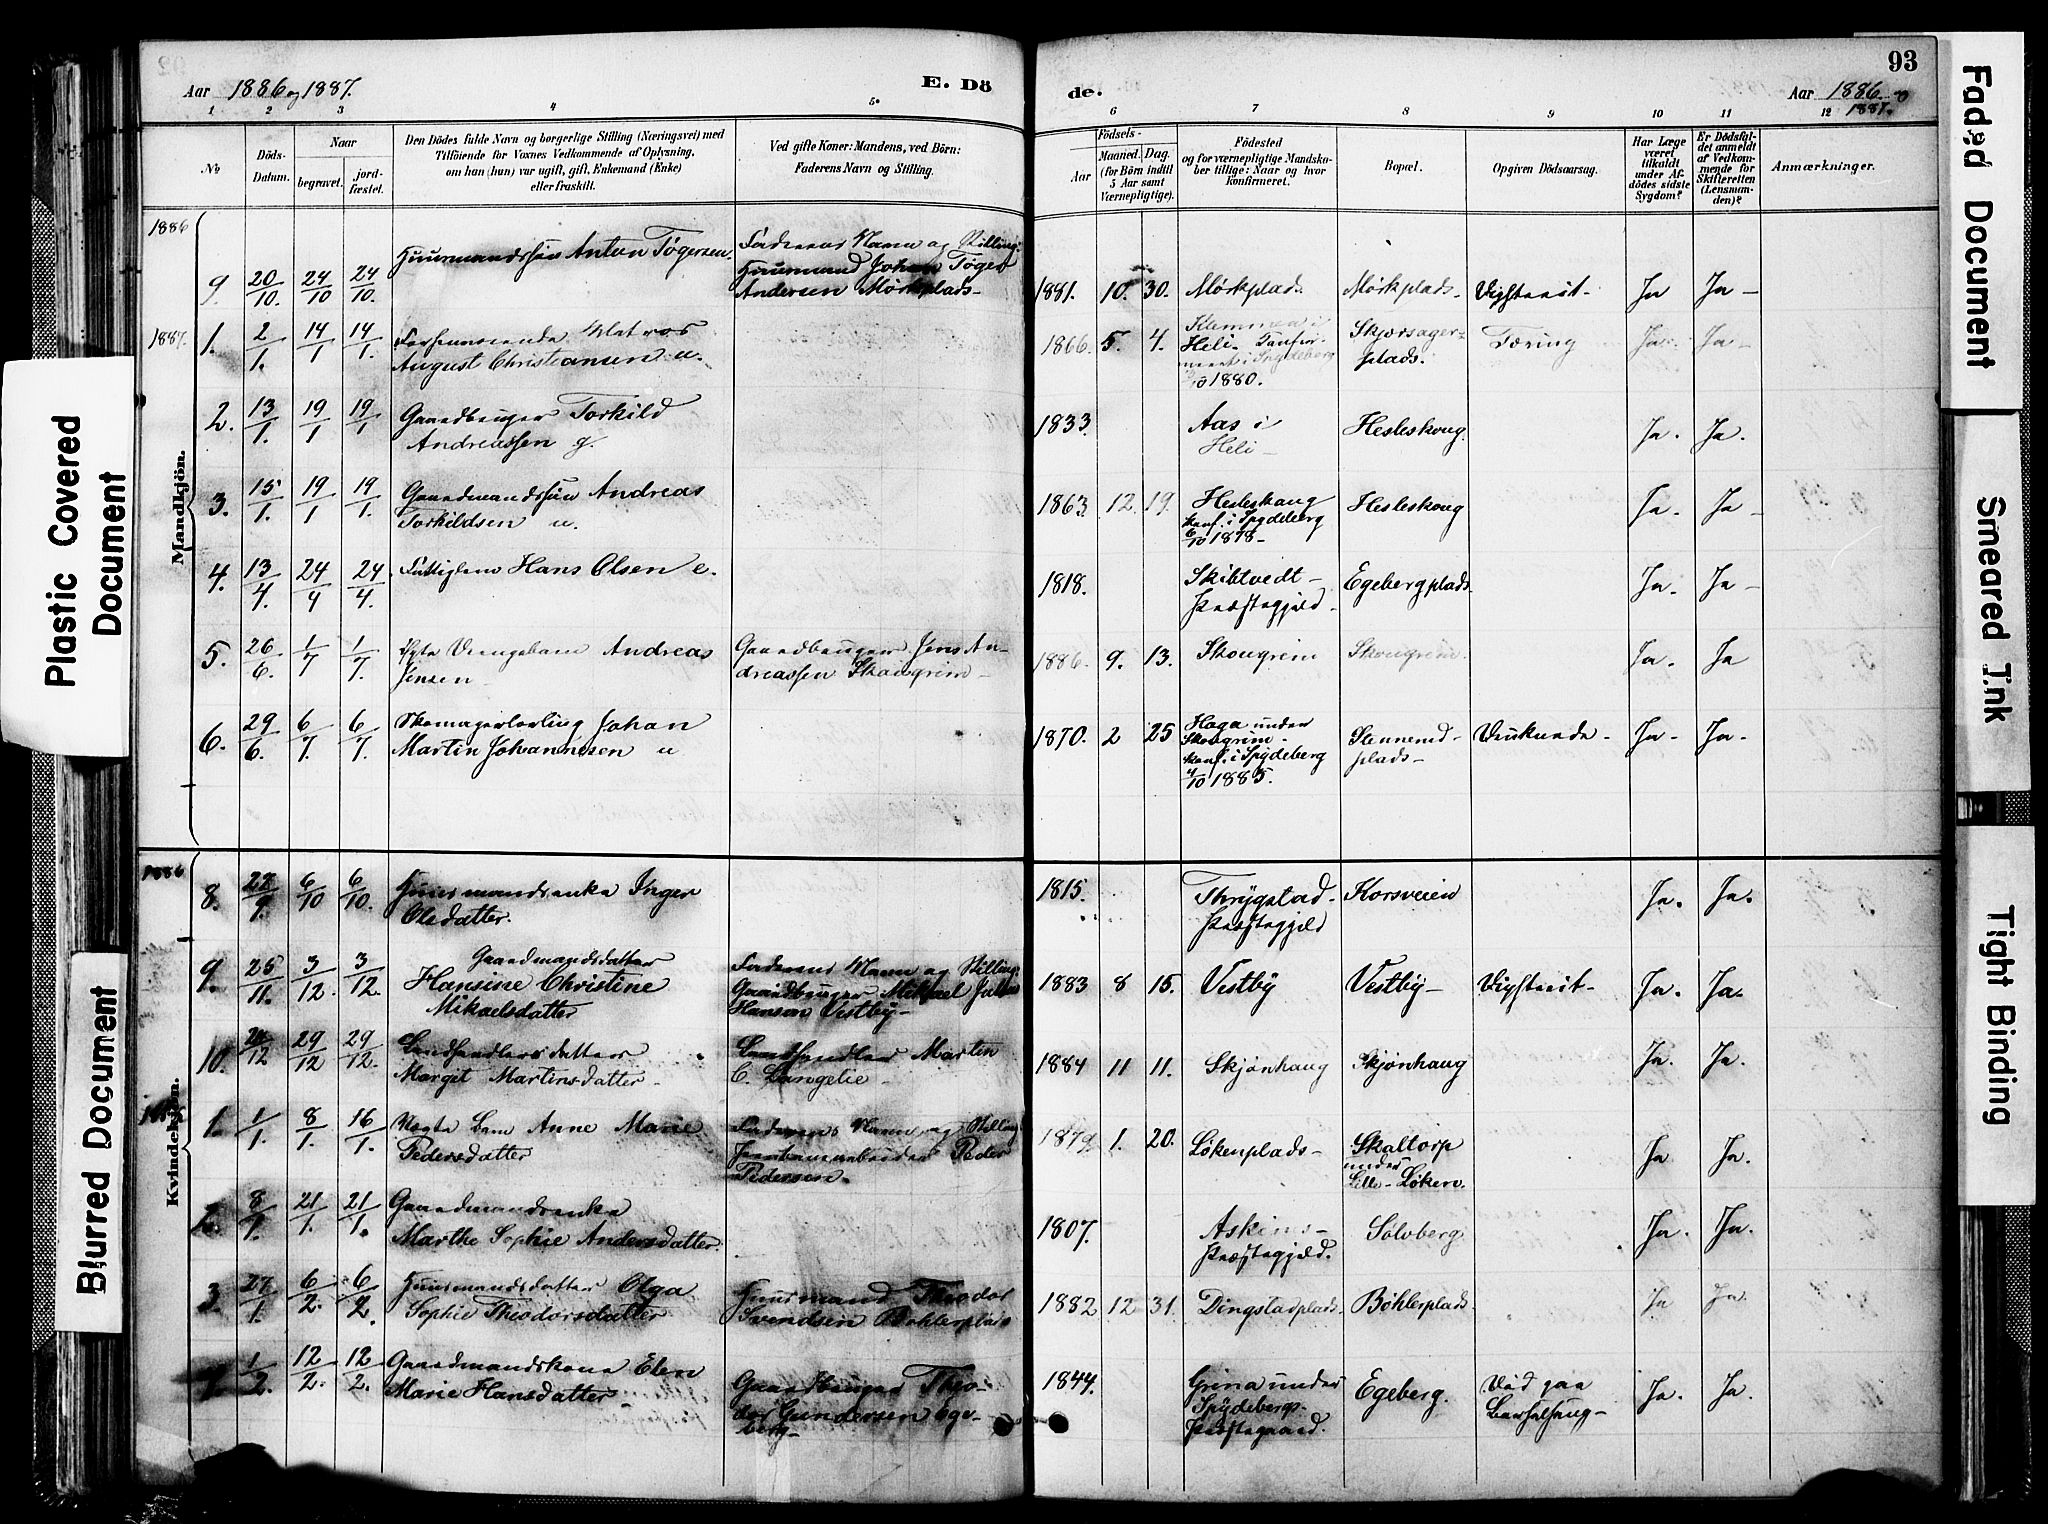 Aar 1886 og 1887.
E. Dö
1 2 3 4 5.
№
Döds-
Datum.
Naar
begravet.
jord-
fæstet.
Den Dödes fulde Navn og borgerlige Stilling (Næringsvei) med
Tilföiende for Voxnes Vedkommende af Oplysning,
om han (hun) var ugift, gift, Enkemand (Enke)
eller fraskilt.
Ved gifte Koner: Mandens, ved Börn:
Faderens Navn og Stilling.
de.
Aar 1886 og
1887.
93
6 7 8 9 10 11 12
Födsels-
Aar
Maaned.
Dag.
(for Börn indtil
5 Aar samt
Værnepligtige).
Födested
og for værnepligtige Mandskaber tillige: Naar og hvor
Konfirmeret.
Bopæl.
Opgiven Dödsaarsag.
Har Læge
været
tilkaldt
under Af-
dödes sidste
Sygdom?
Er Dödsfal-
det anmeldt
af Vedkom-
mende for
Skifteretten
(Lensman-
den)?
Anmærkninger.
Mandkjön.
1886
9. 20/10. 24/10 24/10. Huusmandssøn Anton Tøgersen. Faderens Navn og Stilling:
Huusmand Johan Tøger
Andersen Mørkplads- 1881. 10. 30. Mørkplads. Mørkplads- Ja Ja -
1887. 1. 2/1. 14/1 14/1. Matros
August Christiansen u. 1866. 5. 4. Heli. Spydeberg
1880. Skjørsager-
plads. Tæring Ja. Ja -
2. 13/1. 19/1 19/1 Gaardbruger Torkild
Andreassen g. 1833. Aas i
Heli - Hesleskoug. Ja. Ja.
3. 15/1. 19/1 19/1. Gaardmandssøn Andreas
Torkildsen u. 1863. 12. 19. Hesleskoug
konf. i Spydeberg
6/10 1878- Hesleskoug Ja. Ja -
4. 13/4. 24/4 24/4. Fattiglem Hans Olsen e. 1818. Skibtvedt -
Præstegjeld. Egebergplads. Ja. Ja -
5. 26/6. 1/7 1/7. Ægte Drengebarn Andreas
Jensen Gaardbruger Jens An-
dreassen Skougrim - 1886. 9. 13. Skougrim Skougrim. Ja. Ja
6. 29/6. 6/7 6/7. Skomagerlærling Johan
Martin Johannesen u 1870. 2 25 Haga under
Skougrim -
konf. i Spydeberg
4/10 1885. Stennerud-
plads- Druknede. Ja. Ja.
Kvindekjön.
1886 8. 28/9. 6/10 6/10. Huusmandsenke Inger
Olsdatter. 1815. Thrygstad -
Præstegjeld Korsveien Ja. Ja.
9. 25/11. 3/12. 3/12. Gaardmandsdatter
Hansine Christine
Mikaelsdatter Faderens Navn og Stilling:
Gaardbruger Mikael
Hanson Vestby- 1883 8 15. Vestby Vestby- Ja. Ja.
10. 29/12 29/12. Landhandlersdatter
Margit Martinsdatter - Landhandler Martin
C. Langelie - 1884 11 11. Skjønhaug Skjønhaug Ja. Ja.
1. 1/1. 8/1. 16/1. Ægte Barn Anne Marie
Pedersdatter Faderens Navn og Stilling
Jernbanearbeider Peder
Pedersen. 1879. 1. 20. Løkenplads- Skaltorp
under
Lille-Løken. Ja Ja.
2. 8/1. 21/1. 21/1. Gaardmandsenke
Marthe Sophie Andersdatter. 1807. Askims-
Præstegjeld. Sølvberg Ja. Ja.
3. 27/1. 6/2. 6/2. Huusmandsdatter Olga
Sophie Theodorsdatter Huusmand Theodor
Svendsen Bøhlerplads 1882 12 31. Dingstadplads. Bøhlerplads. Ja Ja.
4. 1/2. 12/2. 12/2. Gaardmandskone Elen
Marie Hansdatter - Gaardbruger Theo-
dor Gundersen Ege-
berg - 1844. Grina under
Spydebergs-
Præstegaard. Egeberg. Død paa
Barselseng - Ja. Ja.
Plastic Covered
Document
Blurred Document
Faded Document
Smeared Ink
Tight Binding